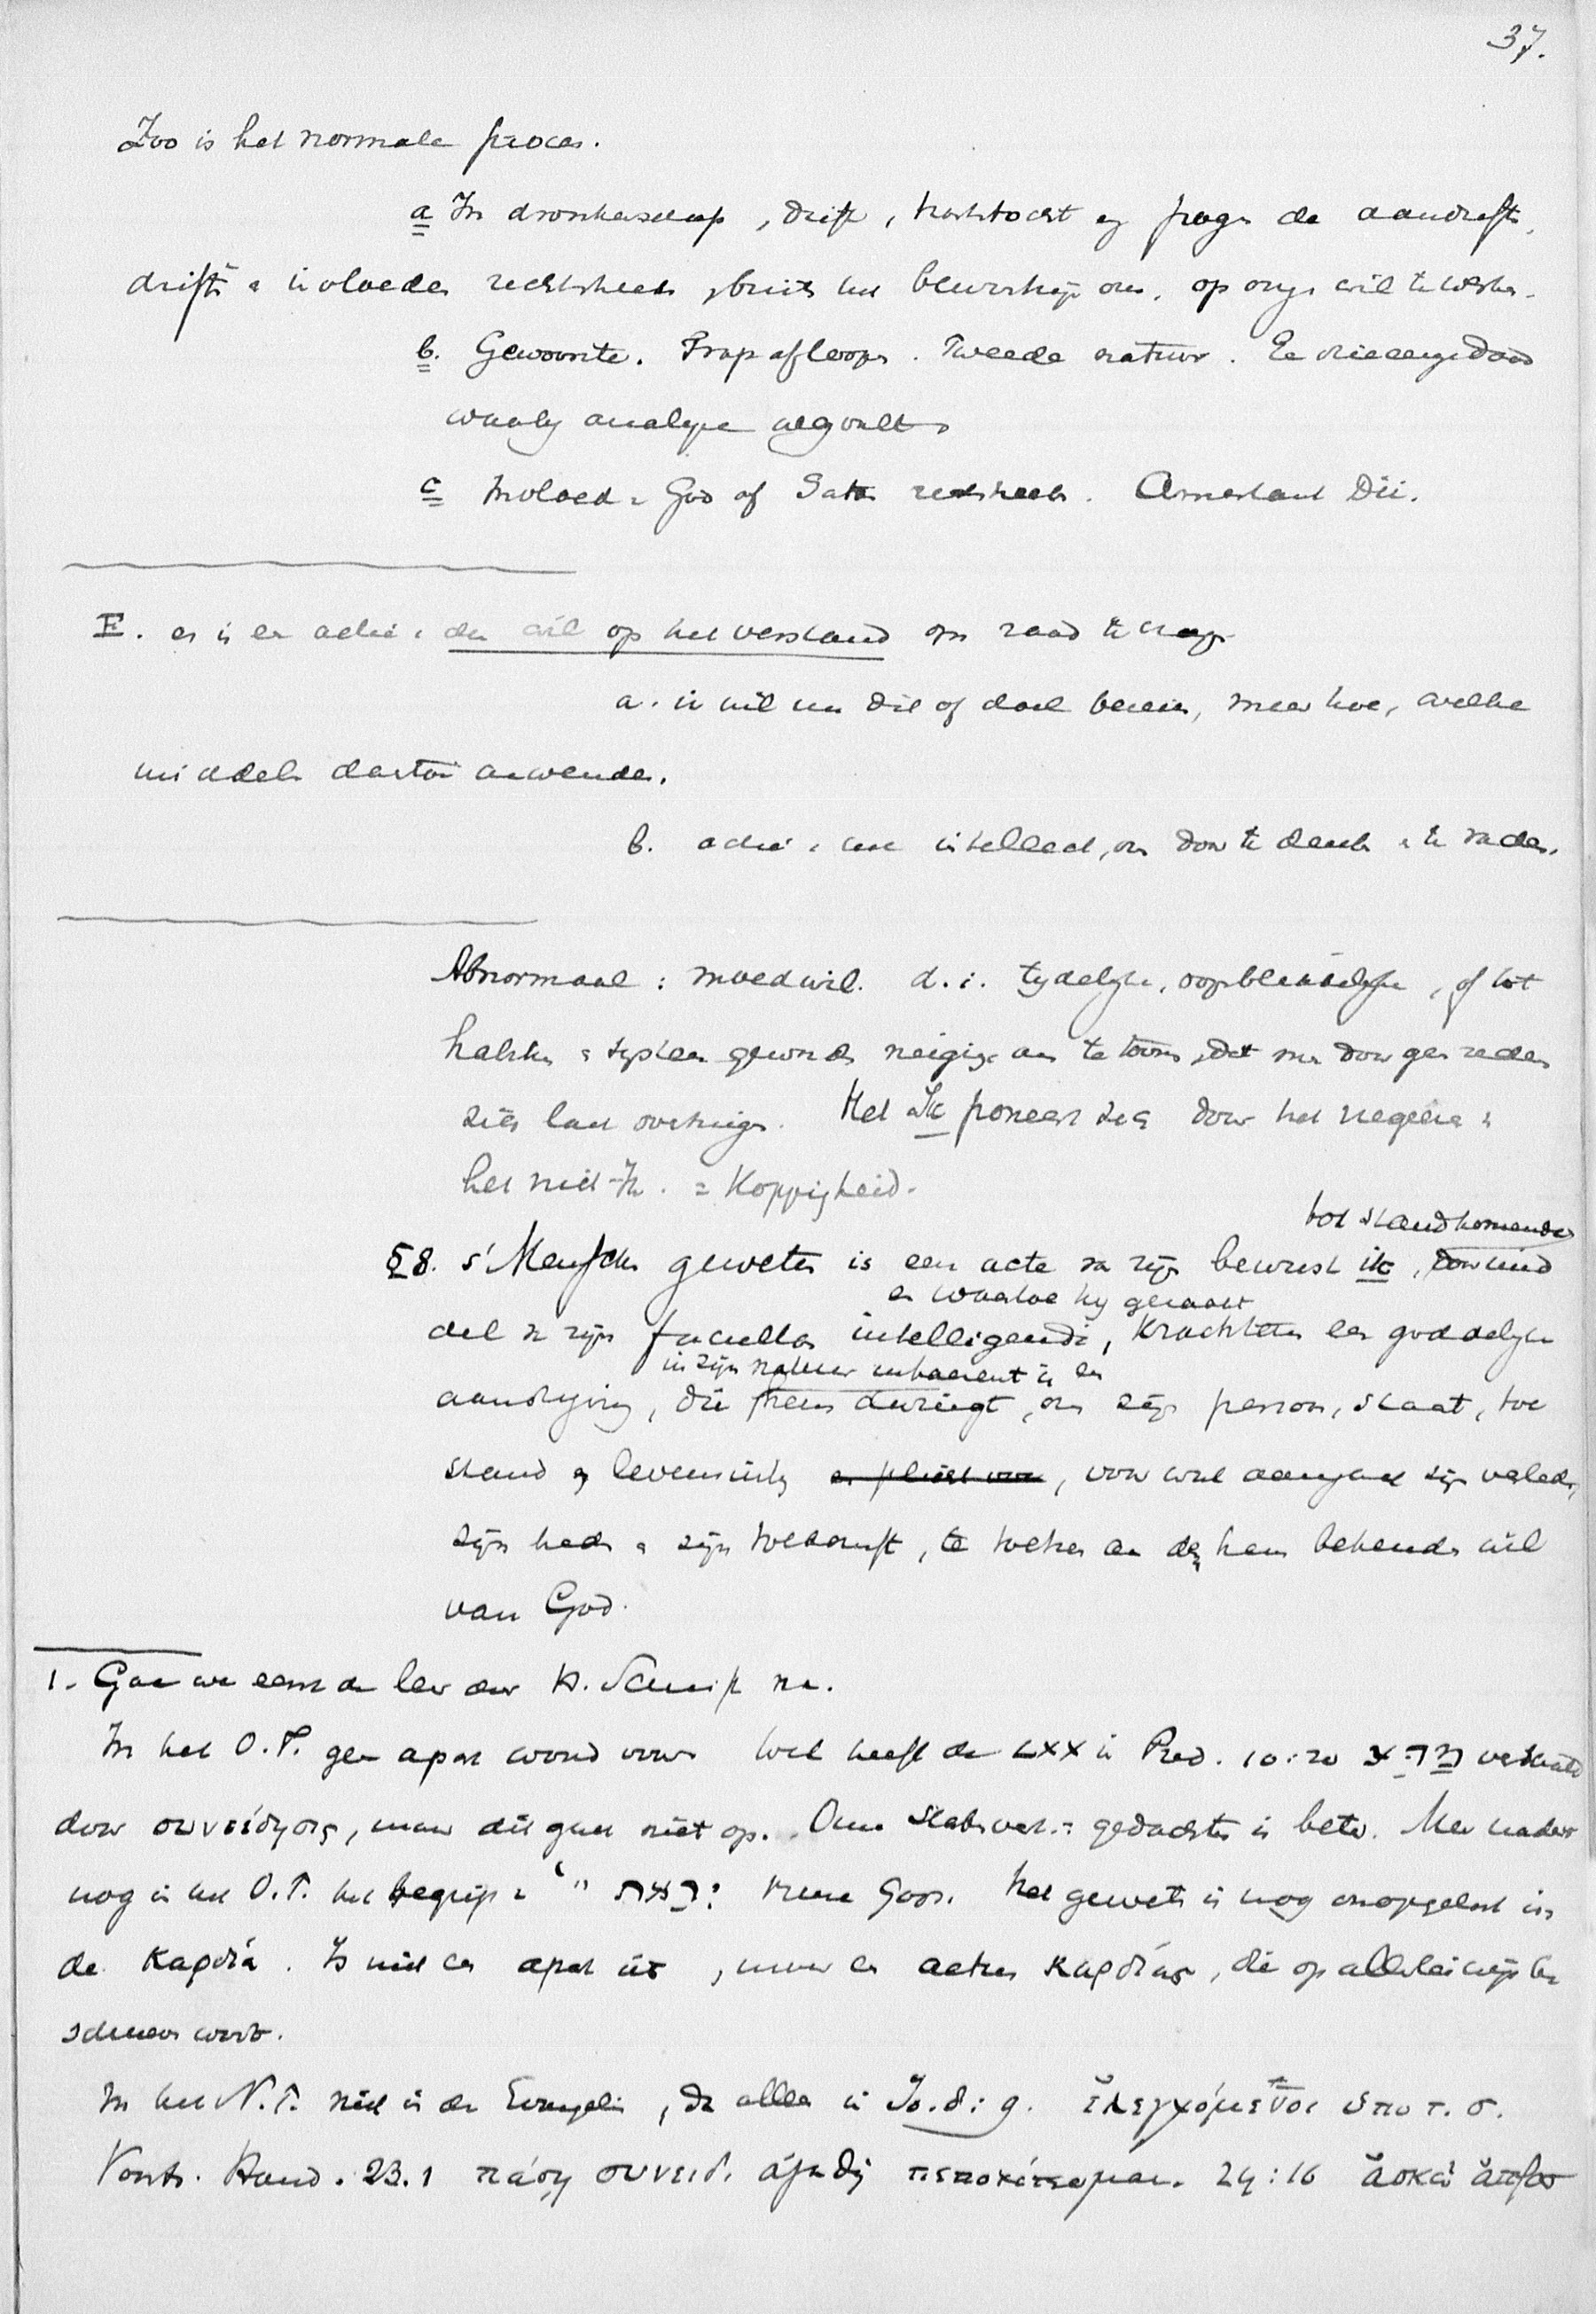 37.
Zoo is het normale proces.
a In dronkenschap, drift, hartstocht en pogen de aandrift,
drift & invloeden rechtstreeks, buiten het bewustzijn om, op onze wil te werken.
b. Gewoonte. Trap afloopen. Tweede natuur. En
waarbij analyse wegvalt.
c Invloed v God of Satan rechtstreeks. Dei.
E. er is een actie v den wil op het verstand om raad te vragen
a. ik wil nu dit of doel bereiken, maar hoe, welke
middelen daartoe aanwenden.
b. actie v het intellect, om door te denken & te raden.
Abnormaal: moedwil. d.i. tijdelijke, oogenblikkelijke, of tot
& systeem geworden neiging om te toonen, dat men door geen reden
zich laat overtuigen. Het Ik poneert zich door het negeeren v
het niet-Ik. = Koppigheid.
tot stand komende
§8. s'Menschen geweten is een acte van zijn bewust ik,
en waartoe hij geraakt
del v zijn facultas intelligendi, krachtens een goddelijke
in zijn natuur inhaerent is en
aandrijving, die hem dwingt, om zijn persoon, staat, toe
stand en levensuiting, voor wat aangaat zijn verleden,
zijn heden & zijn toekomst, te toetsen aan den hem bekenden wil
van God.
1. Gaan we eerst de leer der H. Schrift na.
In het O.T. geen apart woord voor. Wel heeft de LXX in Pred. 10:20 מַדָּע vertaald
door συνείδησις, maar dit gaat niet op. Onze Statenvert.: gedachten is beter. Men
nog in het O.T. het begrip v יִרְאַת " vreeze Gods. Het geweten is nog onopgelost in
de καρδία. Is niet een apart iets, maar een actus καρδίας, die op allerlei wijze be
schreven wordt.
In het N.T. niet in de Evangeliën, dan alleen in Jo. 8:9. ἐλεγχόμενοι ὑπο τ. σ.
Voorts. Hand. 23.1 πάσῃ συνειδ. ἀγαθῇ πεπολίτευμαι. 24:16 ἀσκῶ